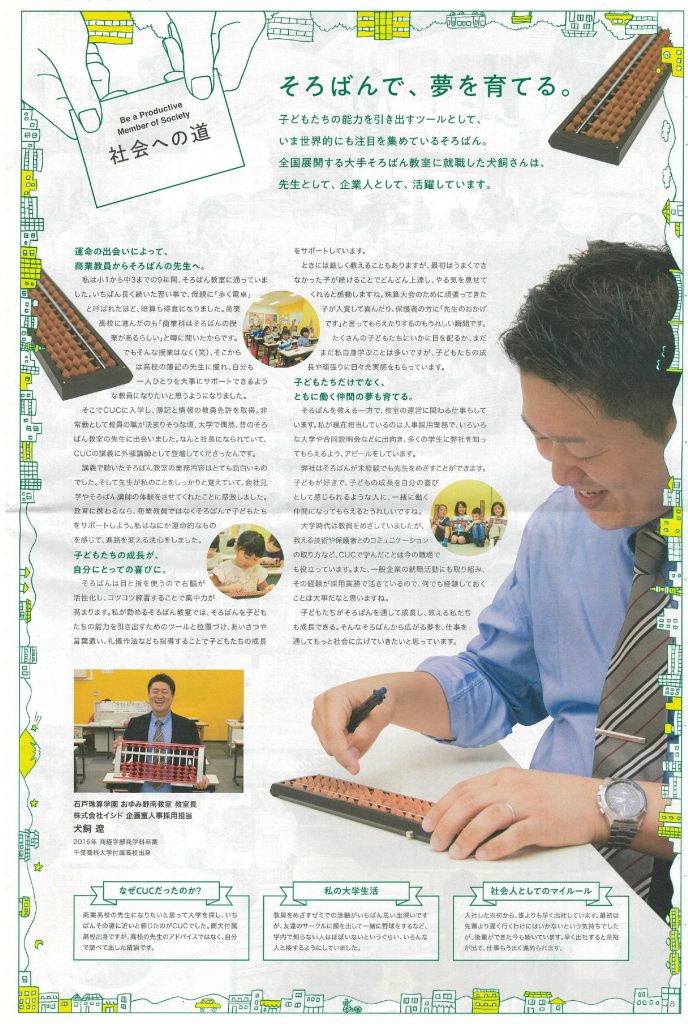 Be a Productive
Member of Society
社会への道
そろばんで、夢を育てる。
子どもたちの能力を引き出すツールとして、
いま世界的にも注目を集めているそろばん。
全国展開する大手そろばん教室に就職した犬飼さんは、
先生として、企業人として、活躍しています。
運命の出会いによって、
商業教員からそろばんの先生へ。
私は小1から中3までの9年間、そろばん教室に通っていま
した。いちばん長く続いた習い事で、母親に「歩く電卓」
と呼ばれたほど、暗算も得意になりました。商業
高校に進んだのも「商業科はそろばんの授
業があるらしい」と噂に聞いたからです。
でもそんな授業はなく(笑)、そこから
は高校の簿記の先生に憧れ、自分も
一人ひとりを大事にサポートできるよう
な教員になりたいと思うようになりました。
そこでCUCに入学し、簿記と情報の教員免許を取得。非
常勤として教員の職が決まりそうな頃、大学で偶然、昔のそろ
ばん教室の先生に出会いました。なんと社長になられていて、
CUCの講義に外部講師として登壇してくださったんです。
講義で聴いたそろばん教室の業務内容はとても面白いもの
でした。そして先生が私のことをしっかりと覚えていて、会社見
学やそろばん講師の体験をさせてくれたことに感激しました。
教育に携わるなら、商業教員ではなくそろばんで子どもたち
をサポートしよう。私はなにか運命的なもの
を感じて、進路を変える決心をしました。
子どもたちの成長が、
自分にとっての喜びに。
そろばんは目と指を使うので右脳が
活性化し、コツコツ練習することで集中力が
高まります。私が勤めるそろばん教室では、そろばんを子ども
たちの能力を引き出すためのツールと位置づけ、あいさつや
言葉遣い、礼儀作法なども指導することで子どもたちの成長
をサポートしています。
ときには厳しく教えることもありますが、最初はうまくでき
なかった子が続けることでどんどん上達し、やる気を見せて
くれると感動しますね。珠算大会のために頑張ってきた
子が入賞して喜んだり、保護者の方に「先生のおかげ
です」と言ってもらえたりするのもうれしい瞬間です。
たくさんの子どもたちにいかに目を配るか、まだ
まだ私自身学ぶことは多いですが、子どもたちの成
長や頑張りに日々充実感をもらっています。
子どもたちだけでなく、
ともに働く仲間の夢も育てる。
そろばんを教える一方で、教室の運営に関わる仕事もして
います。私が現在担当しているのは人事採用業務で、いろいろ
な大学や合同説明会などに出向き、多くの学生に弊社を知っ
てもらえるよう、アピールをしています。
弊社はそろばんが未経験でも先生をめざすことができます。
子どもが好きで、子どもの成長を自分の喜び
として感じられるような人に、一緒に働く
仲間になってもらえるとうれしいですね。
大学時代は教員をめざしていましたが、
教える技術や保護者とのコミュニケーション
の取り方など、CUCで学んだことは今の職場で
も役立っています。また、一般企業の就職活動にも取り組み、
その経験が採用業務で活きているので、何でも経験しておく
ことは大事だなと思いますね。
子どもたちがそろばんを通して成長し、教える私たち
も成長できる。そんなそろばんから広がる夢を、仕事を
通してもっと社会に広げていきたいと思っています。
石戸珠算学園 おゆみ野南教室 教室長
株式会社イシド 企画室人事採用担当
犬飼 遼
2015年 商経学部商学科卒業
千葉商科大学付属高校出身
なぜCUCだったのか?
商業高校の先生になりたいと思って大学を探し、いち
ばんその道に近いと感じたのがCUCでした。商大付属
高校出身ですが、高校の先生のアドバイスではなく、自分
で調べて出した結論です。
私の大学生活
教員をめざすゼミでの活動がいちばん思い出深いです
が、友達のサークルに顔を出して一緒に野球をするなど、
学内で知らない人はほぼいないというぐらい、いろんな
人と接するようにしていました。
社会人としてのマイルール
入社した当初から、誰よりも早く出社しています。最初は
先輩より遅く行くわけにはいかないという気持ちでした
が、後輩ができた今も続いています。早く出社すると余裕
が出て、仕事もうまく進められます。
8